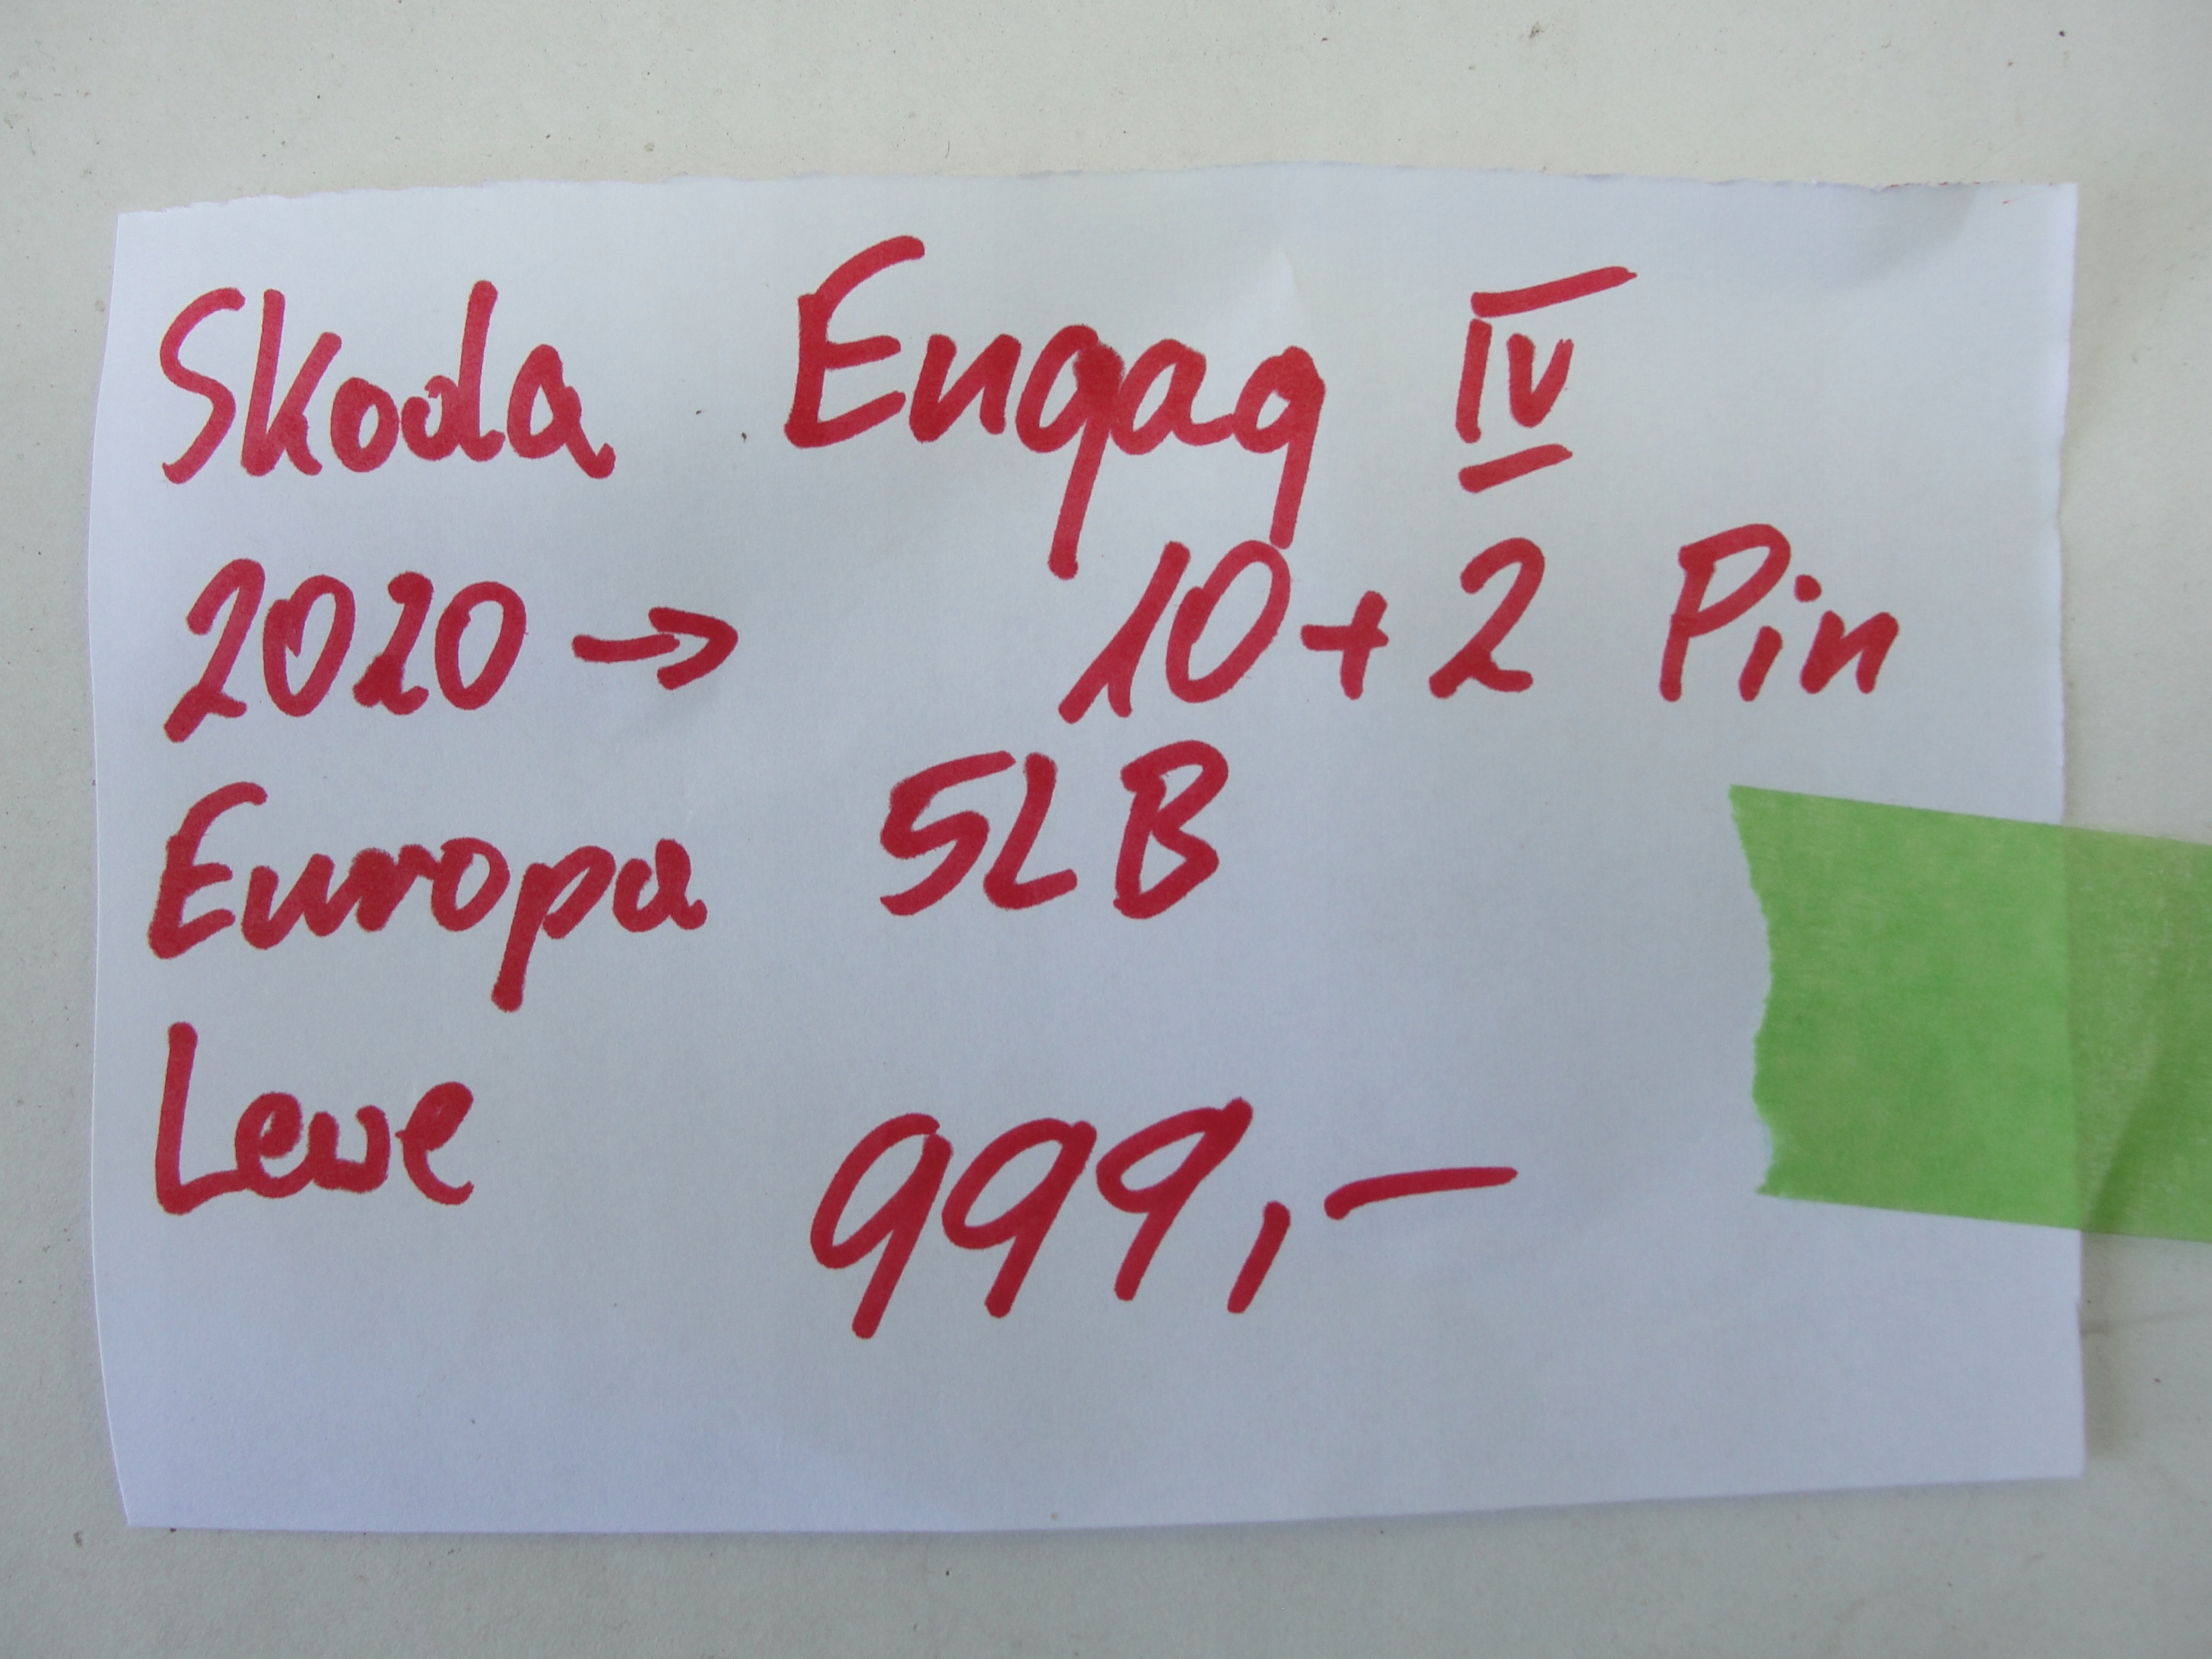 Skoda Engag IV
2020 → 10+2 Pin
Europa 5LB
Lewe 999,-